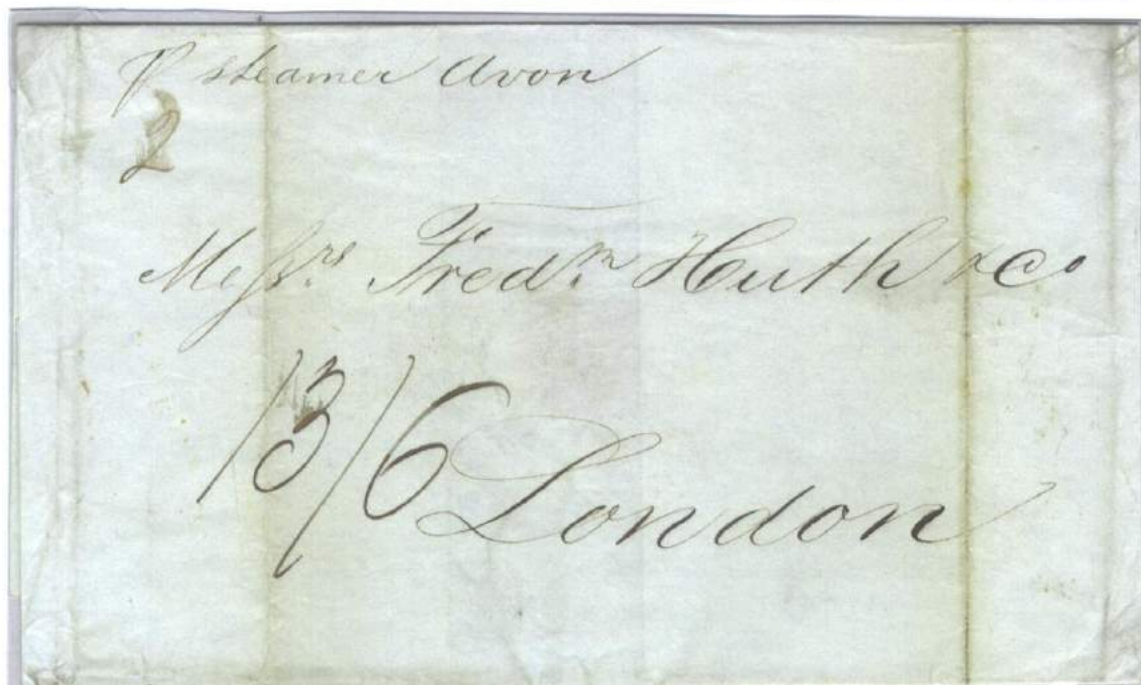 p steamer Avon
2
Messrs. Fredk. Huth & Co
13/6
London